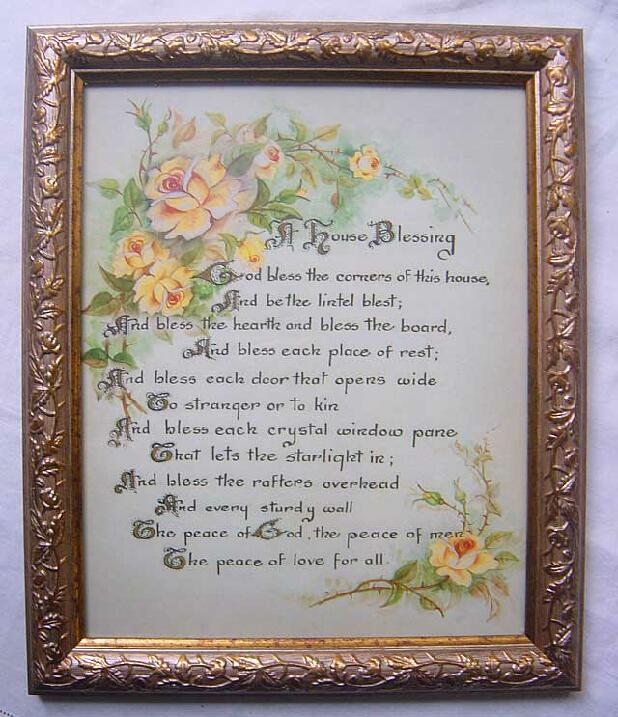 A House Blessing
God bless the corners of this house,
And be the lintel blest;
And bless the hearth and bless the board,
And bless each place of rest;
And bless each door that opens wide
To stranger or to kin
And bless each crystal window pane
That lets the starlight in;
And bless the rafters overhead
And every sturdy wall
The peace of God, the peace of men
The peace of love for all.